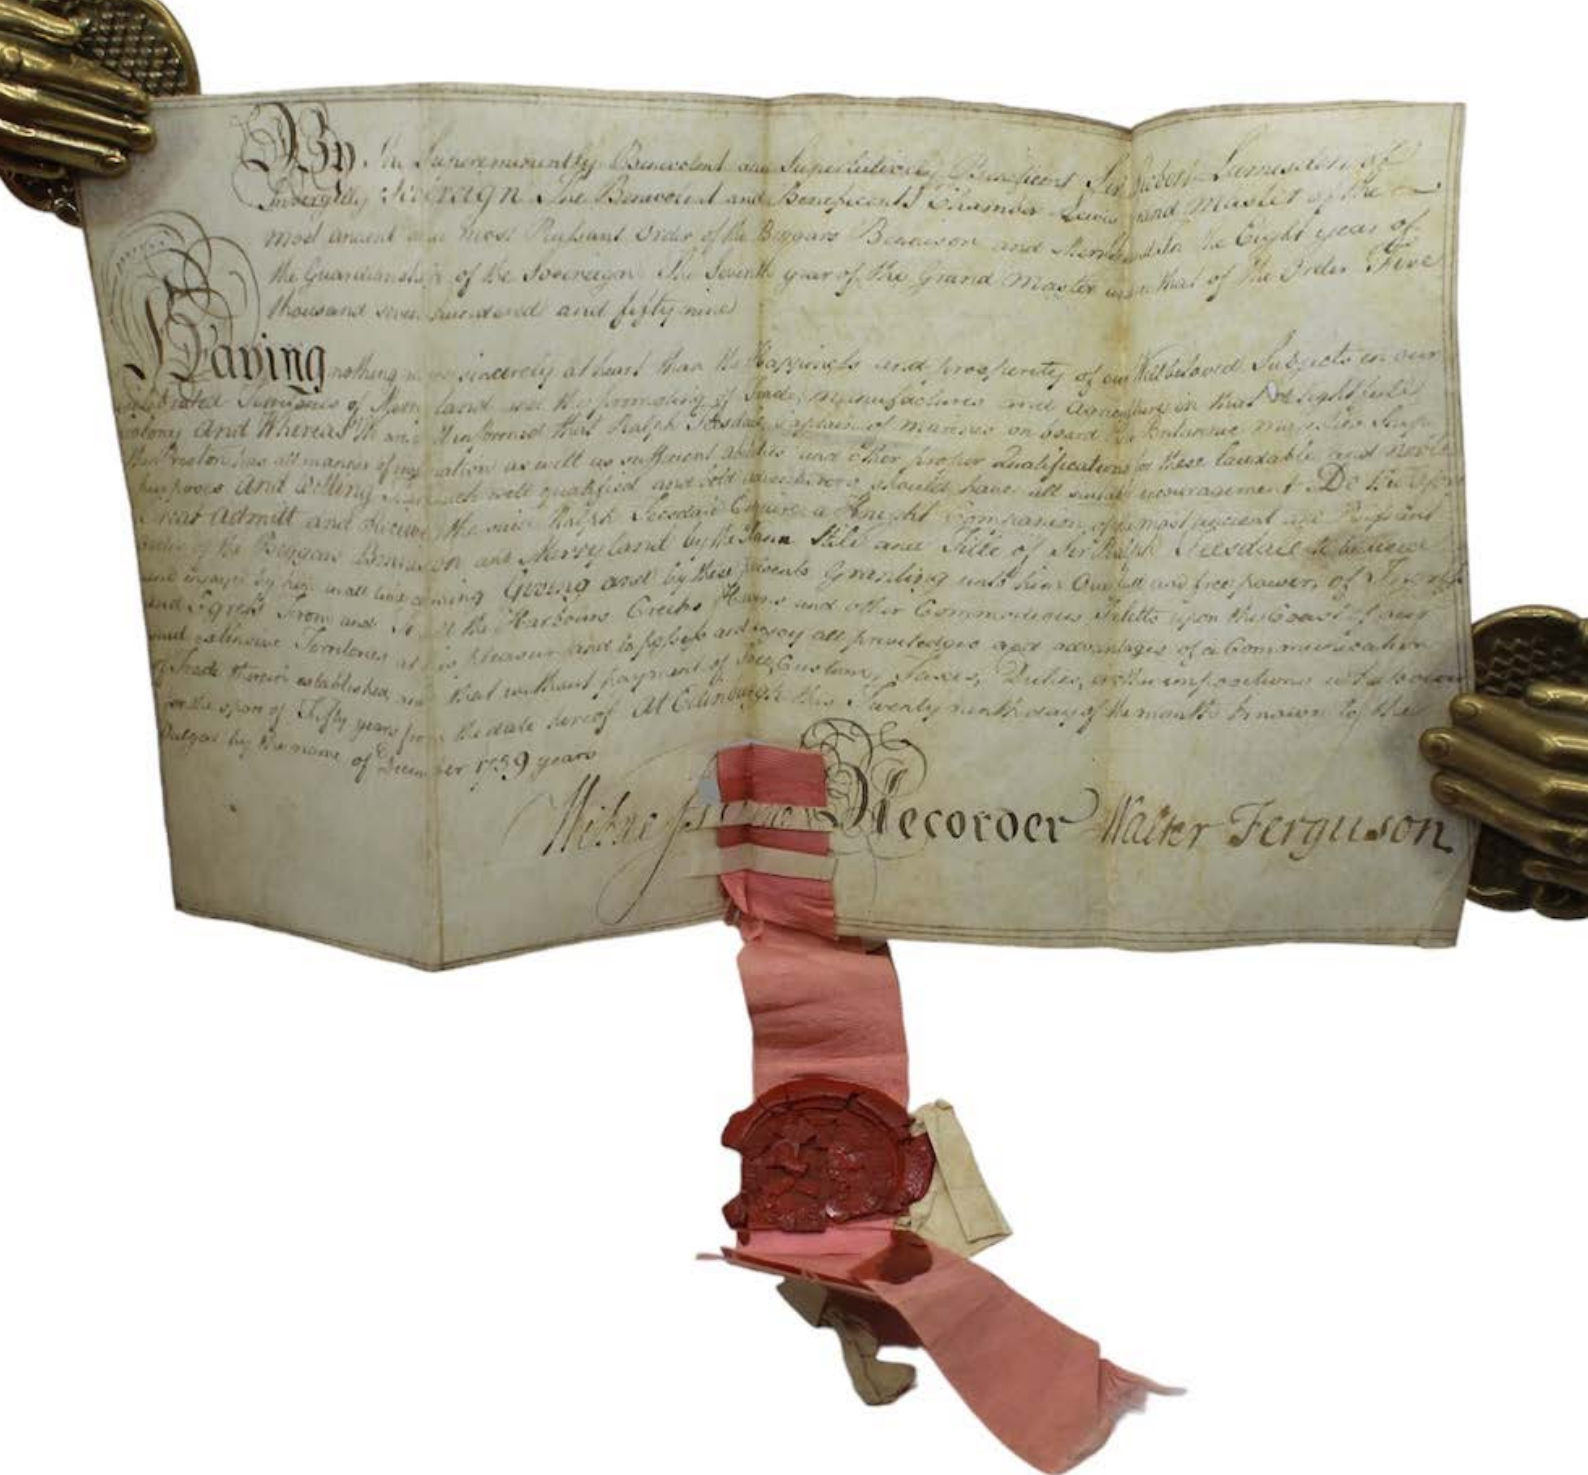 By The Supereminently Benevolent and Superlatively Beneficent Sir Robert Lumisden of
Invergilly Sovereign The Benevolent and Beneficent Chamber Lewis Grand Master of the
most ancient and most Puissant Order of the Beggars Bennison and Merryland In The Eight year of
the Guardianship of the Sovereign The Seventh year of the Grand Master and in that of The Order Five
thousand seven hundered and fifty nine
Having nothing more sincerely at heart than the Happiness and prosperity of our Well beloved Subjects in our
Celebrated Territories of Merryland and the promoting of Trade, manufactures and Agriculture in that delightfull
Colony And Whereas We are informed that Ralph Teesdale Captain of marines on board his Britannic majesties Ship
the Preston has all manner of inclination as well as sufficient abilities and other proper Qualifications for these laudable and noble
purposes And Willing that such well qualified and bold adventurers should have all suitable encouragement Do therefore
Creat Admitt and Receive the said Ralph Teesdale Esquire a Knight Companion of our most ancient and Puissant
order of the Beggars Bennison and Merryland by the Name Stile and Title of Sir Ralph Teesdale to be used
and enjoyed by him in all time coming Giving and by these presents Granting unto him Our full and free powers of Ingress
and Egress from and To all the Harbours Creeks Havens and other Commodious Inletts upon the Coast of our
said extensive Territories at his pleasure and to possess and enjoy all priviledges and advantages of a Communication
of Trade therein established and that without payment of Toll, Custom, Taxes, Duties, or other impositions whatsoever
for the span of Fifty years from the date hereof At Edinburgh this Twenty ninth day of the month known to the
Vulgar by the name of December 1759 years
Witness Recorder Walter Ferguson